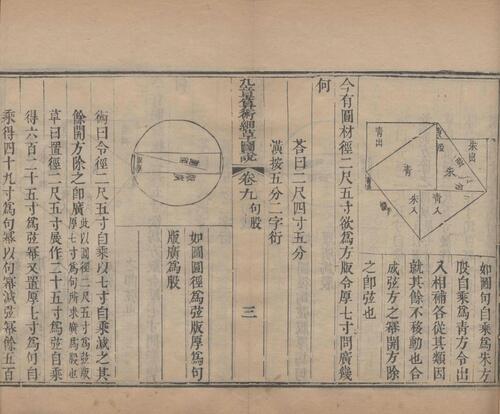 青出
朱出
青
朱
青入
朱入
如圖句自乘爲朱方
股自乘爲青方令出
入相補各從其類因
就其餘不移動也合
成弦方之冪開方除
之即弦也
今有圓材徑二尺五寸欲爲方版令厚七寸問廣幾
何
荅曰二尺四寸五分
潢按五分二字衍
九章算術細草圖說
卷九
句股
三
如圖圓徑爲弦版厚爲句
版廣爲股
術曰令徑二尺五寸自乘以七寸自乘減之其
餘開方除之即廣
此以圓徑二尺五寸爲弦版
厚七寸爲句所求廣爲股也
草曰置徑二尺五寸展作二十五寸爲弦自乘
得六百二十五寸爲弦冪又置厚七寸爲句自
乘得四十九寸爲句冪以句冪減弦冪餘五百